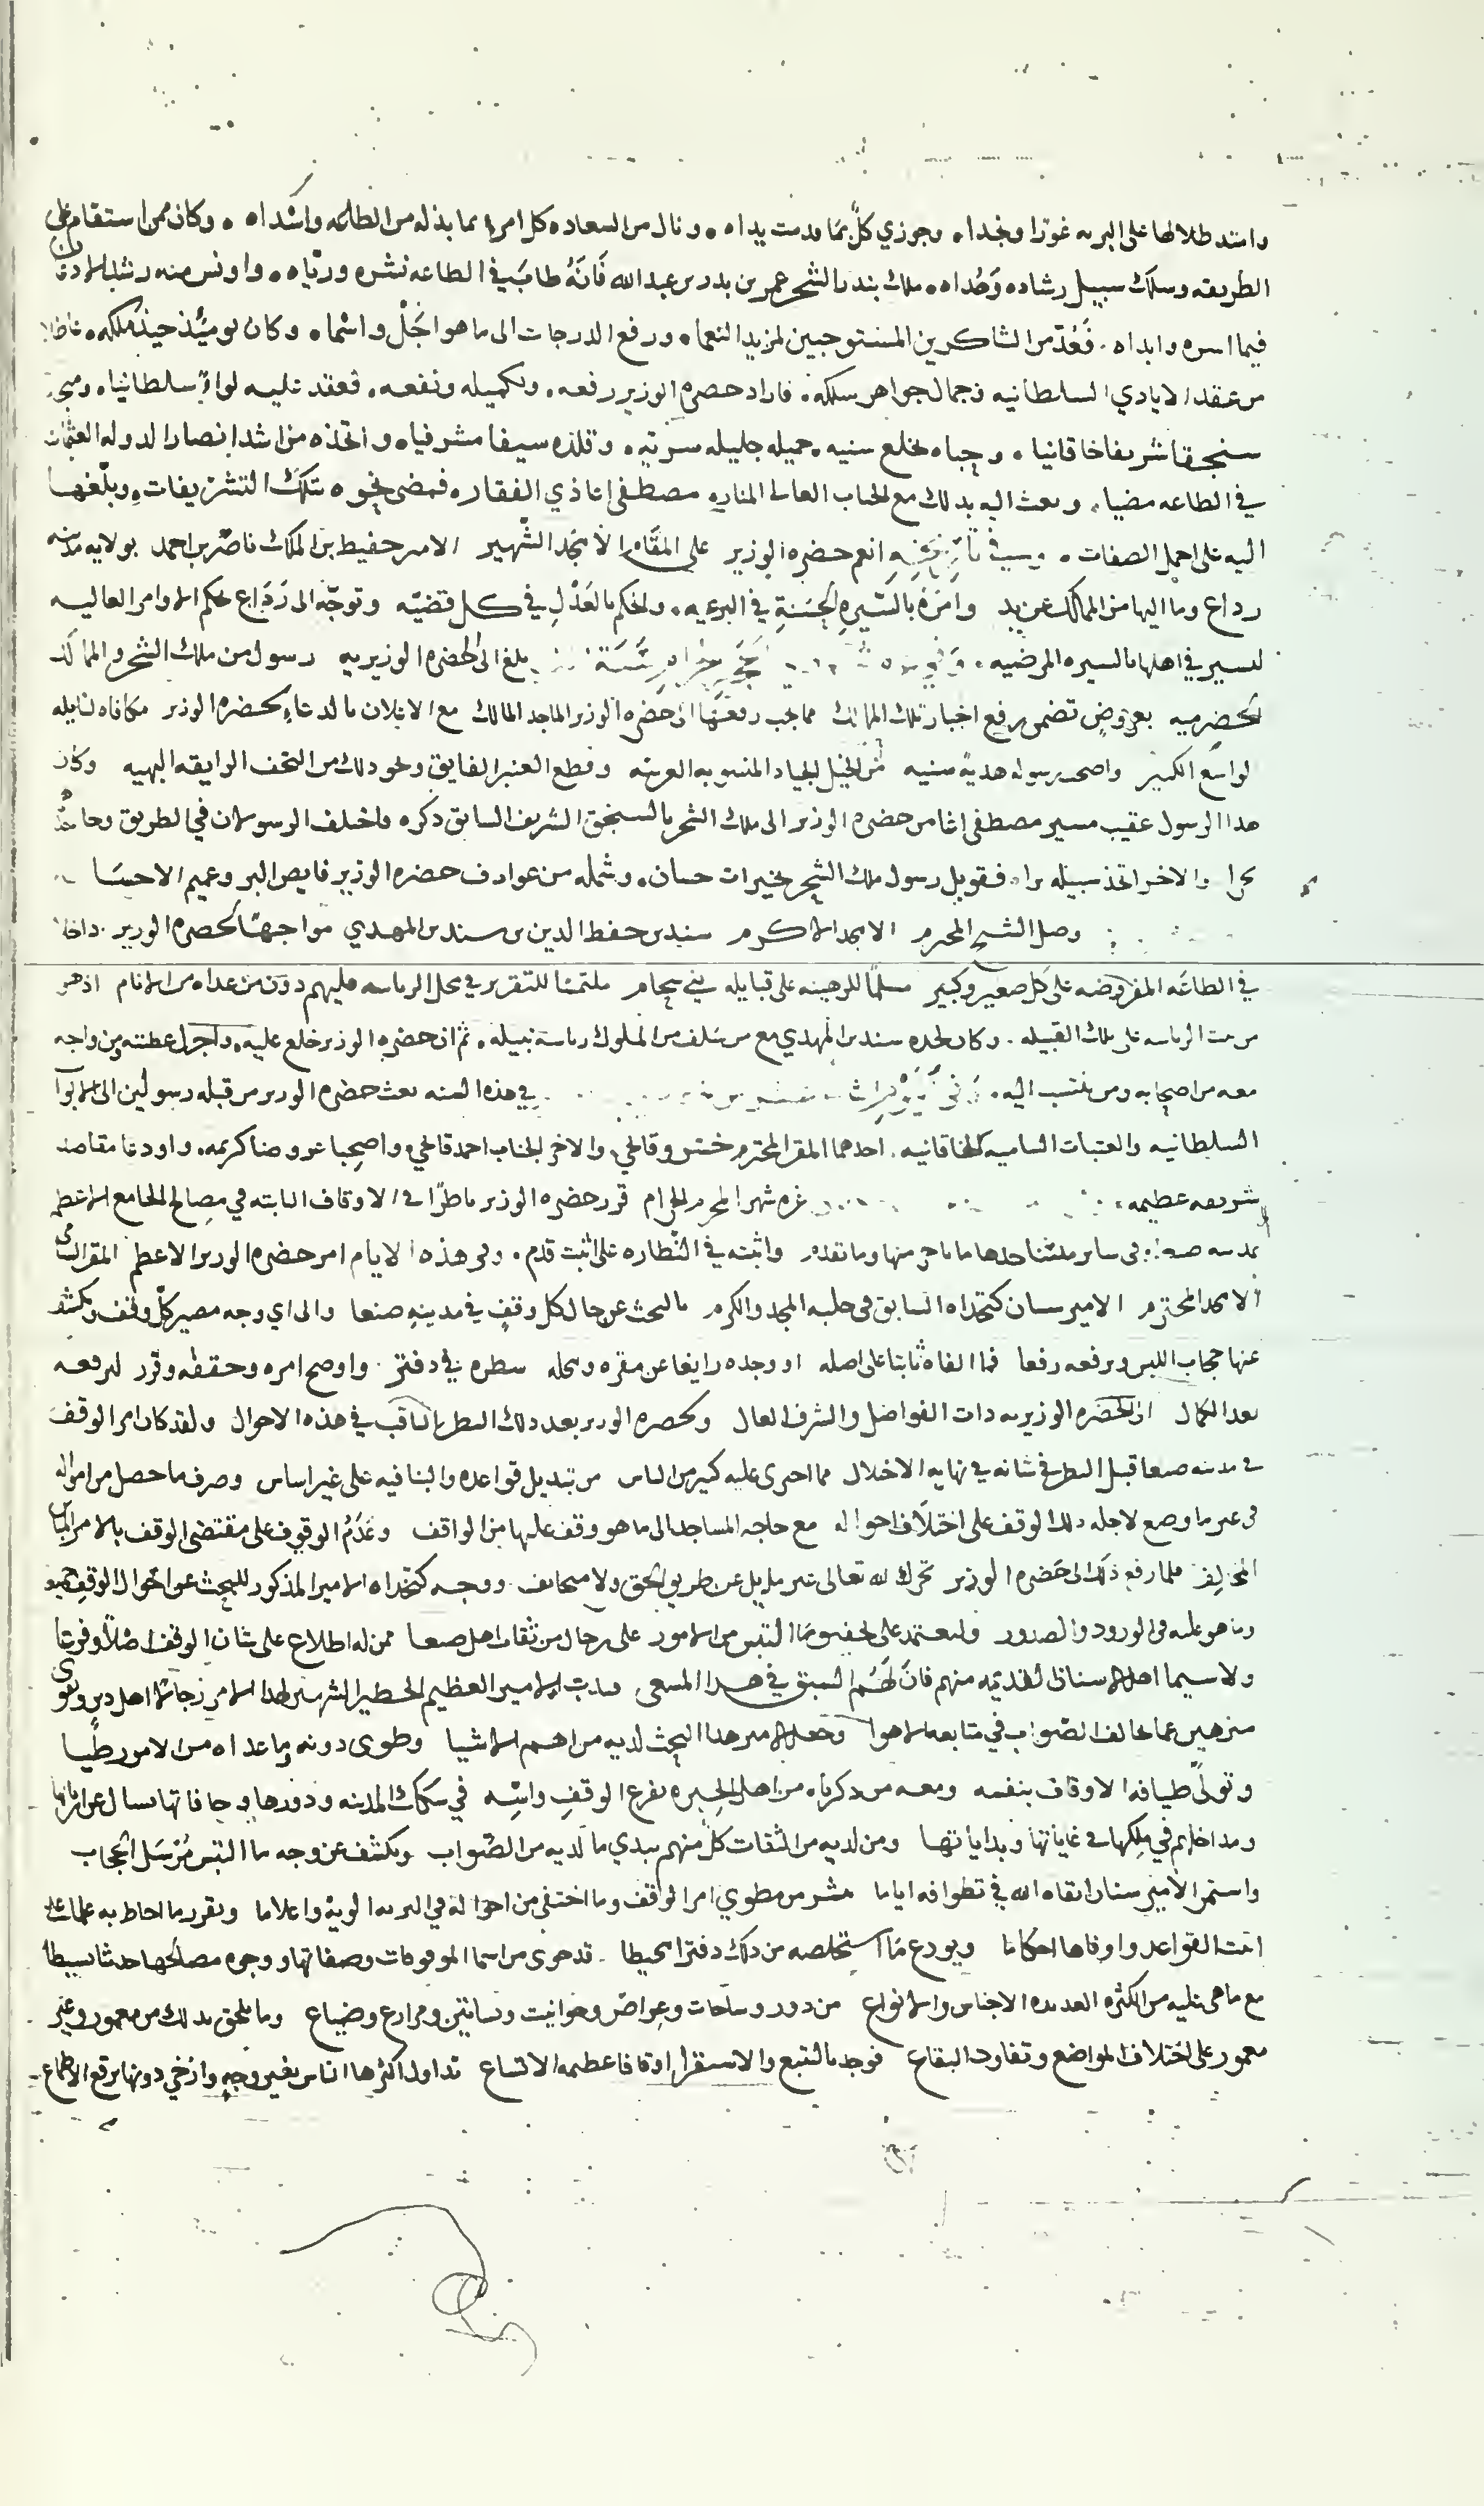 وامتد ظلالها على البريه غورًا ونجدا، وجوزي كلٌّ بما قدمت يداه، ونال من السعاده كل امرء بما بذله من الطاعه واسداه، وكان ممن استقام على
الطريقه وسلك سبيل رشاده وهداه، ملك بندر الشحر عمر بن بدر بن عبد الله فانه طاب في الطاعه نشره ورياه، واونس منه رشد
فيما اسره وابداه، فَعُدّ من الشاكرين المستوجبين لمزيد النعماء ورفع الدرجات الى ما هو اجَلّ واسماء وكان يوميئذ
من عقد الايادي السلطانيه وجمال جواهر سلكه، فاراد حضره الوزير رفعه، وتكميله ونفعه، فعقد عليه لواءً سلطانيا،
سنجقا شريفا خاقانيا، وحباه بخلع سنيه، جميله جليله سريّه، وقلده سيفا مشرفيا، واتخذه من اشد انصار الدوله العثمان
في الطاعه مضيا، وبعث اليه بذلك مع الجناب العالى المناره مصطفى اغا ذي الفقار، فمضى نحوه بتلك التشريفات، وبلّغها
اليه على اجمل الصفات، وفي انعم حضره الوزير على المقام الامجد الشهير الامير حفيظ بن الملك ناصر بن احمد بولايه مدينه
رداع وما اليها من الممالك وامَرَهُ بالسّيرة الحسَنةِ في البرعيه، والحكم بالعَدْلِ في كل قضيّه وتوجّه الى رَدَاع بحكم الاوامر العاليه
ليسير في اهلها بالسيره المرضيه، بلغ الى الحضره الوزيريه رسول من ملك الشحر والممالك
الحضرميه بعروضٍ تضمن رفع اخبار تلك الممالك مما يجب رفعها الى حضره الوزير الماجد المالك مع الاعلان بالدعاء لحضره الوزير مكافاه لنايله
الواسع الكبير واصحب رسوله هديهً سنيه من الخيل الجياد المنسوبه العربيه وقطع العنبر الفايق ونحو ذلك من التحف الرايقه البهيه وكان
هدا الرسول عقيب مسير مصطفى اغا من حضره الوزير الى ملك الشحر بالسنجق الشريف السابق ذكره فاختلف الرسولان في الطريق
بحرا والاخر اتخذ سبيله برا، فقوبل رسول ملك الشحر بخيرات حسان، وشمله من عوارف حضره الوزير فايض البر وعميم الاحسَا
وصل الشيخ المحترم الامجد الاكرم سند بن حفظ الدين بن سند بن المهدي مواجهًا لحضره الوزير داخلا
في الطاعَه المفروضه على كل صغير وكبير مسلّمًا للرهينه على قبايله ملتمسًا للتقرير في محل الرياسه عليهم دون من عداه من الانام اذ هو
من بيت الرياسه على تلك القبيله، وكان لجده سند بن المهدي مع من سَلف من الملوك رياسة نبيله، ثم ان حضره الوزير خلع عليه، واجزل عطيته ومن واجه
معه من اصحابه ومن ينتسب اليه، في هذه السنه بعث حضره الوزير من قبله رسولين الى الابوا
السلطانيه والعتبات الساميه الخاقانيه، احدهما المقر المحترم خسرو قالجي، والاخر الجناب احمد قالجي، واصحبا عروضا كريمه، واودعا مقاصد
شريفه عظيمه، غره شهر المحرم الحرام قرر حضره الوزير ناظرًا في الاوقاف الثابته في مصالح الجامع الاعظم
بمدينه صنعاء وفي ساير مساجدها ما تاخر منها وما تقدم، واثبته في النظاره على اثبت قدم، وفي هذه الايام امر حضره الوزير الاعظم المقر
الامجد المحترم الامير سنان كتخداه السابق في حلبه المجد والكرم بالبحث عن حال كل وقفٍ في مدينه صنعا والى اي وجه مصير كلّ وقف ويكشف
عنها حجاب اللبس ويرفعه رفعا فما الفاه ثابتا على اصله او وجده زايغا عن مقره ومحله سطره في دفتر واوضح امره وحققه وقرر ليرفعه
بعد الكمال الى الحضره الوزيريه ذات الفواضل والشرف العال ولحضره الوزير بعد ذلك النظر الثاقب في هذه الاحوال ولقد كان امر الوقف
في مدينه صنعا قبل النظر في شانه في نهايه الاختلال مما احترى عليه كثير من الناس من تبديل قواعده والبنا فيه على غير اساس وصرف ما حصل من امواله
في غير ما وضع لاجله ذلك الوقف على اختلاف احواله مع حاجه المساجد الى ما هو وقف عليها من الواقف وعَدَمُ الوقوف على مقتضى الوقف بالامر
المخالِف فلما رفع ذلك الى حضره الوزير تحرك لله تعالى غير مايل عن طريق الحق ولا متجانف ووجه كتخداه الامير المذكور للبحث عن احوال الوقف
وما هو عليه في الورود والصدور وليعتمد على تحقيق ما التبس من الامور على رجال من ثقات اهل صنعا ممن له اطلاع على شان الوقف اصلًا وفرعًا
ولاسيما اهل الاسنان القديمه منهم فان لهم السبق في هذا المسعى الامير العظيم الخطير الشهير لهذا الامر رجالًا اهل دين وتقوى
متنزهين عما خالف الصَّواب في متابعه الاهوا وجعل الامير هذا البحث لديه من اهم الاشيا وطوى دونه ما عداه من الامور طيًّا
وتولّى طيافه الاوقاف بنفسه ومعه من ذكرناه من اهل الخبره بفرع الوقفِ واسِّه في سكك المدينه ودورها وحافاتها يسال عن
ومداخلهم في مِلكها في غاياتها وبداياتها ومن لديه من الثقات كلٌّ منهم يبدي ما لديه من الصَّواب ويكشف عن وجه ما التبس مُرْسَل الحجاب
واستمر الامير سنان ابقاه الله في تطوافه اياما ينشر من مطوي امر الوقف وما اختفى من احواله في البريه الويةً واعلاما ويقرر ما احاط به علما على
اثبت القواعد واوفاها احكاما ويودع ما استخلصه من ذلك دفترا محيطا قد حوى من اسما الموقوفات وصفاتها ووجوه مصالحها حديثا بسيطا
مع ما هي عليه من الكثره العديده الاجناس والانواع من دور وساحات وعِراصٍ وحوانيت وبساتين ومزارع وضياع وما يلحق بذلك من معمور وغير
معمور على اختلاف المواضع وتفاوت البقاع فوجد بالتتبع والاستقراء اوقافا عظيمه الاتساع تداول اكثرها الناس بغير وجهٍ وارخي دونها برقع الاطماع